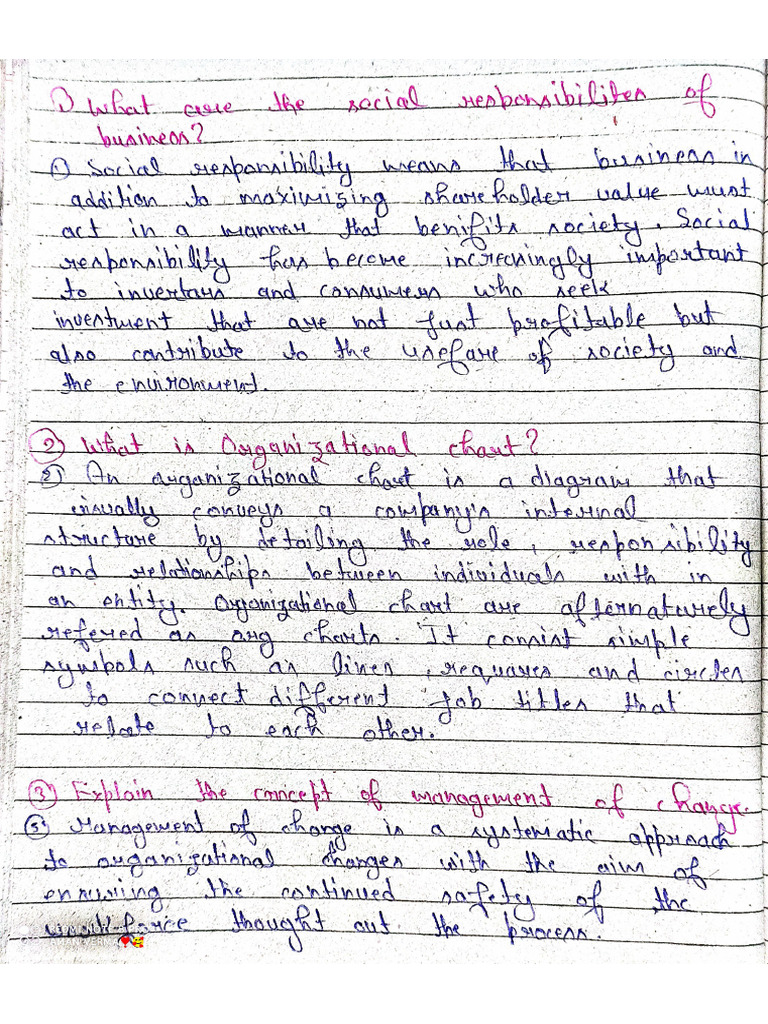 1) What are the social responsibilites of
business?
1) Social responsibility means that business in
addition to maximizing shareholder value must
act in a manner that benifits society. Social
responsibility has become increasingly important
to invertars and consumers who seek
investment that are not just profitable but
also contribute to the welfare of society and
the environment.
2) What is Organizational chart?
2) An organizational chart is a diagram that
visually conveys a company's internal
structure by detailing the role, responsibility
and relationships between individuals with in
an entity. Organizational chart are alternaturely
refered as org charts. It consist simple
symbols such as lines, and circles
to connect different job titles that
relate to each other.
3) Explain the concept of management of change.
3) Management of change is a systematic approach
to organizational changes with the aim of
ensuring the continued safety of the
workforce thought out the process.